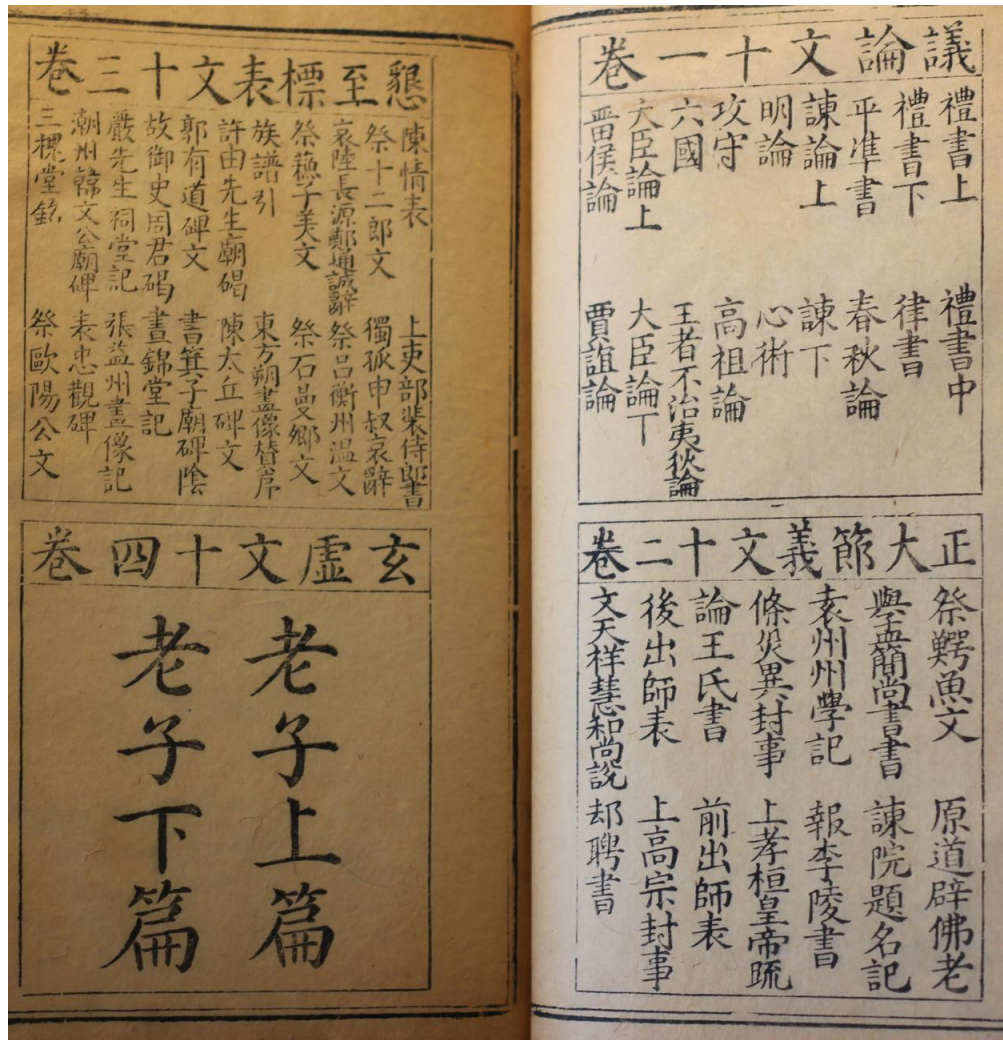 議論文十一卷
禮書上
禮書中
禮書下
律書
平准書
春秋論
諫論上
諫下
明論
心術
攻守
高祖論
六國
王者不治夷狄論
大臣論上
大臣論下
晋侯論
賈誼論
正大節義文十二卷
祭鰐魚文
原道辟佛老
與孟簡尚書書
諫院題名記
袁州州學記
報李陵書
條災異封事
上孝桓皇帝疏
論王氏書
前出師表
後出師表
上高宗封事
文天祥慧和尚說
却聘書
懇至標表文十三卷
陳情表
上吏部裴侍郎書
祭十二郎文
獨孤申叔哀辭
哀陸長源鄭通誠辭
祭呂衡州溫文
祭蘓子美文
祭石曼卿文
族譜引
東方朔畫像賛序
許由先生廟碣
陳太丘碑文
郭有道碑文
書箕子廟碑陰
故御史周君碣
晝錦堂記
嚴先生祠堂記
張益州畫像記
潮州韓文公廟碑
表忠觀碑
三槐堂銘
祭歐陽公文
玄虛文十四卷
老子上篇
老子下篇